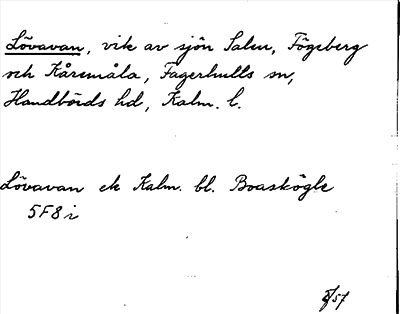 Lövavan, vik av sjön Salen, Fögeberg
och Kåremåla, Fagerhults sn,
Handbörds hd, Kalm. l.
Lövavan ek Kalm. bl. Boaskögle
5F8i
/57